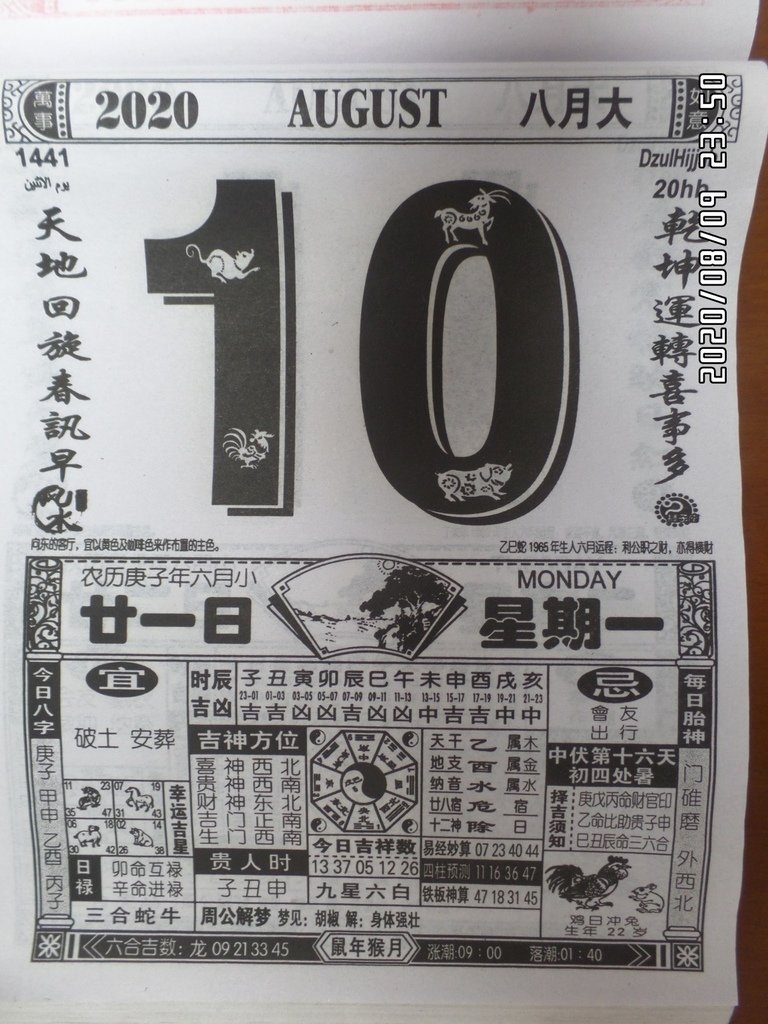 萬事
2020 AUGUST 八月大
如意
1441
يوم الاثنين
DzulHijj
20hb
天地回旋春訊早
乾坤運轉喜事多
2020/08/09 23:30
风水
向东的客厅，宜以黄色及咖啡色来作布置的主色。
乙巳蛇 1965 年生人六月运程：利公职之财，亦得横财
农历庚子年六月小
廿一日
MONDAY
星期一
今日八字
庚子 甲申 乙酉 丙子
宜
破土 安葬
时辰吉凶
子 丑 寅 卯 辰 巳 午 未 申 酉 戌 亥
23-01 01-03 03-05 05-07 07-09 09-11 11-13 13-15 15-17 17-19 19-21 21-23
忌
會友
出行
每日胎神
门碓磨 外西北
吉神方位
喜神西北
贵神西南
财神东北
吉门正南
生门西南
贵人时
子丑申
今日吉祥数
13 37 05 12 26
九星六白
天干 乙 属木
地支 酉 属金
纳音 水 属水
廿八宿 危 宿
十二神 除 日
易经妙算 07 23 40 44
四柱预测 11 16 36 47
铁板神算 47 18 31 45
中伏第十六天
初四处暑
择吉须知
庚戊丙命财官印
乙命比助贵子申
巳丑辰命三六合
鸡日冲兔
生年 22 岁
11 23 07 19
35 47 31 43
06 18 02 14
30 42 26 38
幸运吉星
日禄
卯命互禄
辛命进禄
三合蛇牛
周公解梦 梦见：胡椒 解：身体强壮
六合吉数：龙 09 21 33 45
鼠年猴月
涨潮:09：00 落潮:01：40